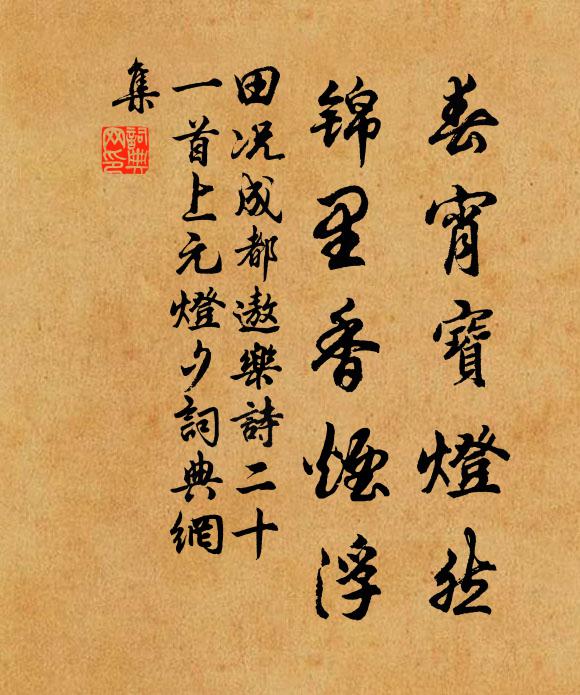 春宵寶燈然
锦里香煙浮
田况成都遨樂詩二十
一首上元燈夕詞典網
集
詞典
网印